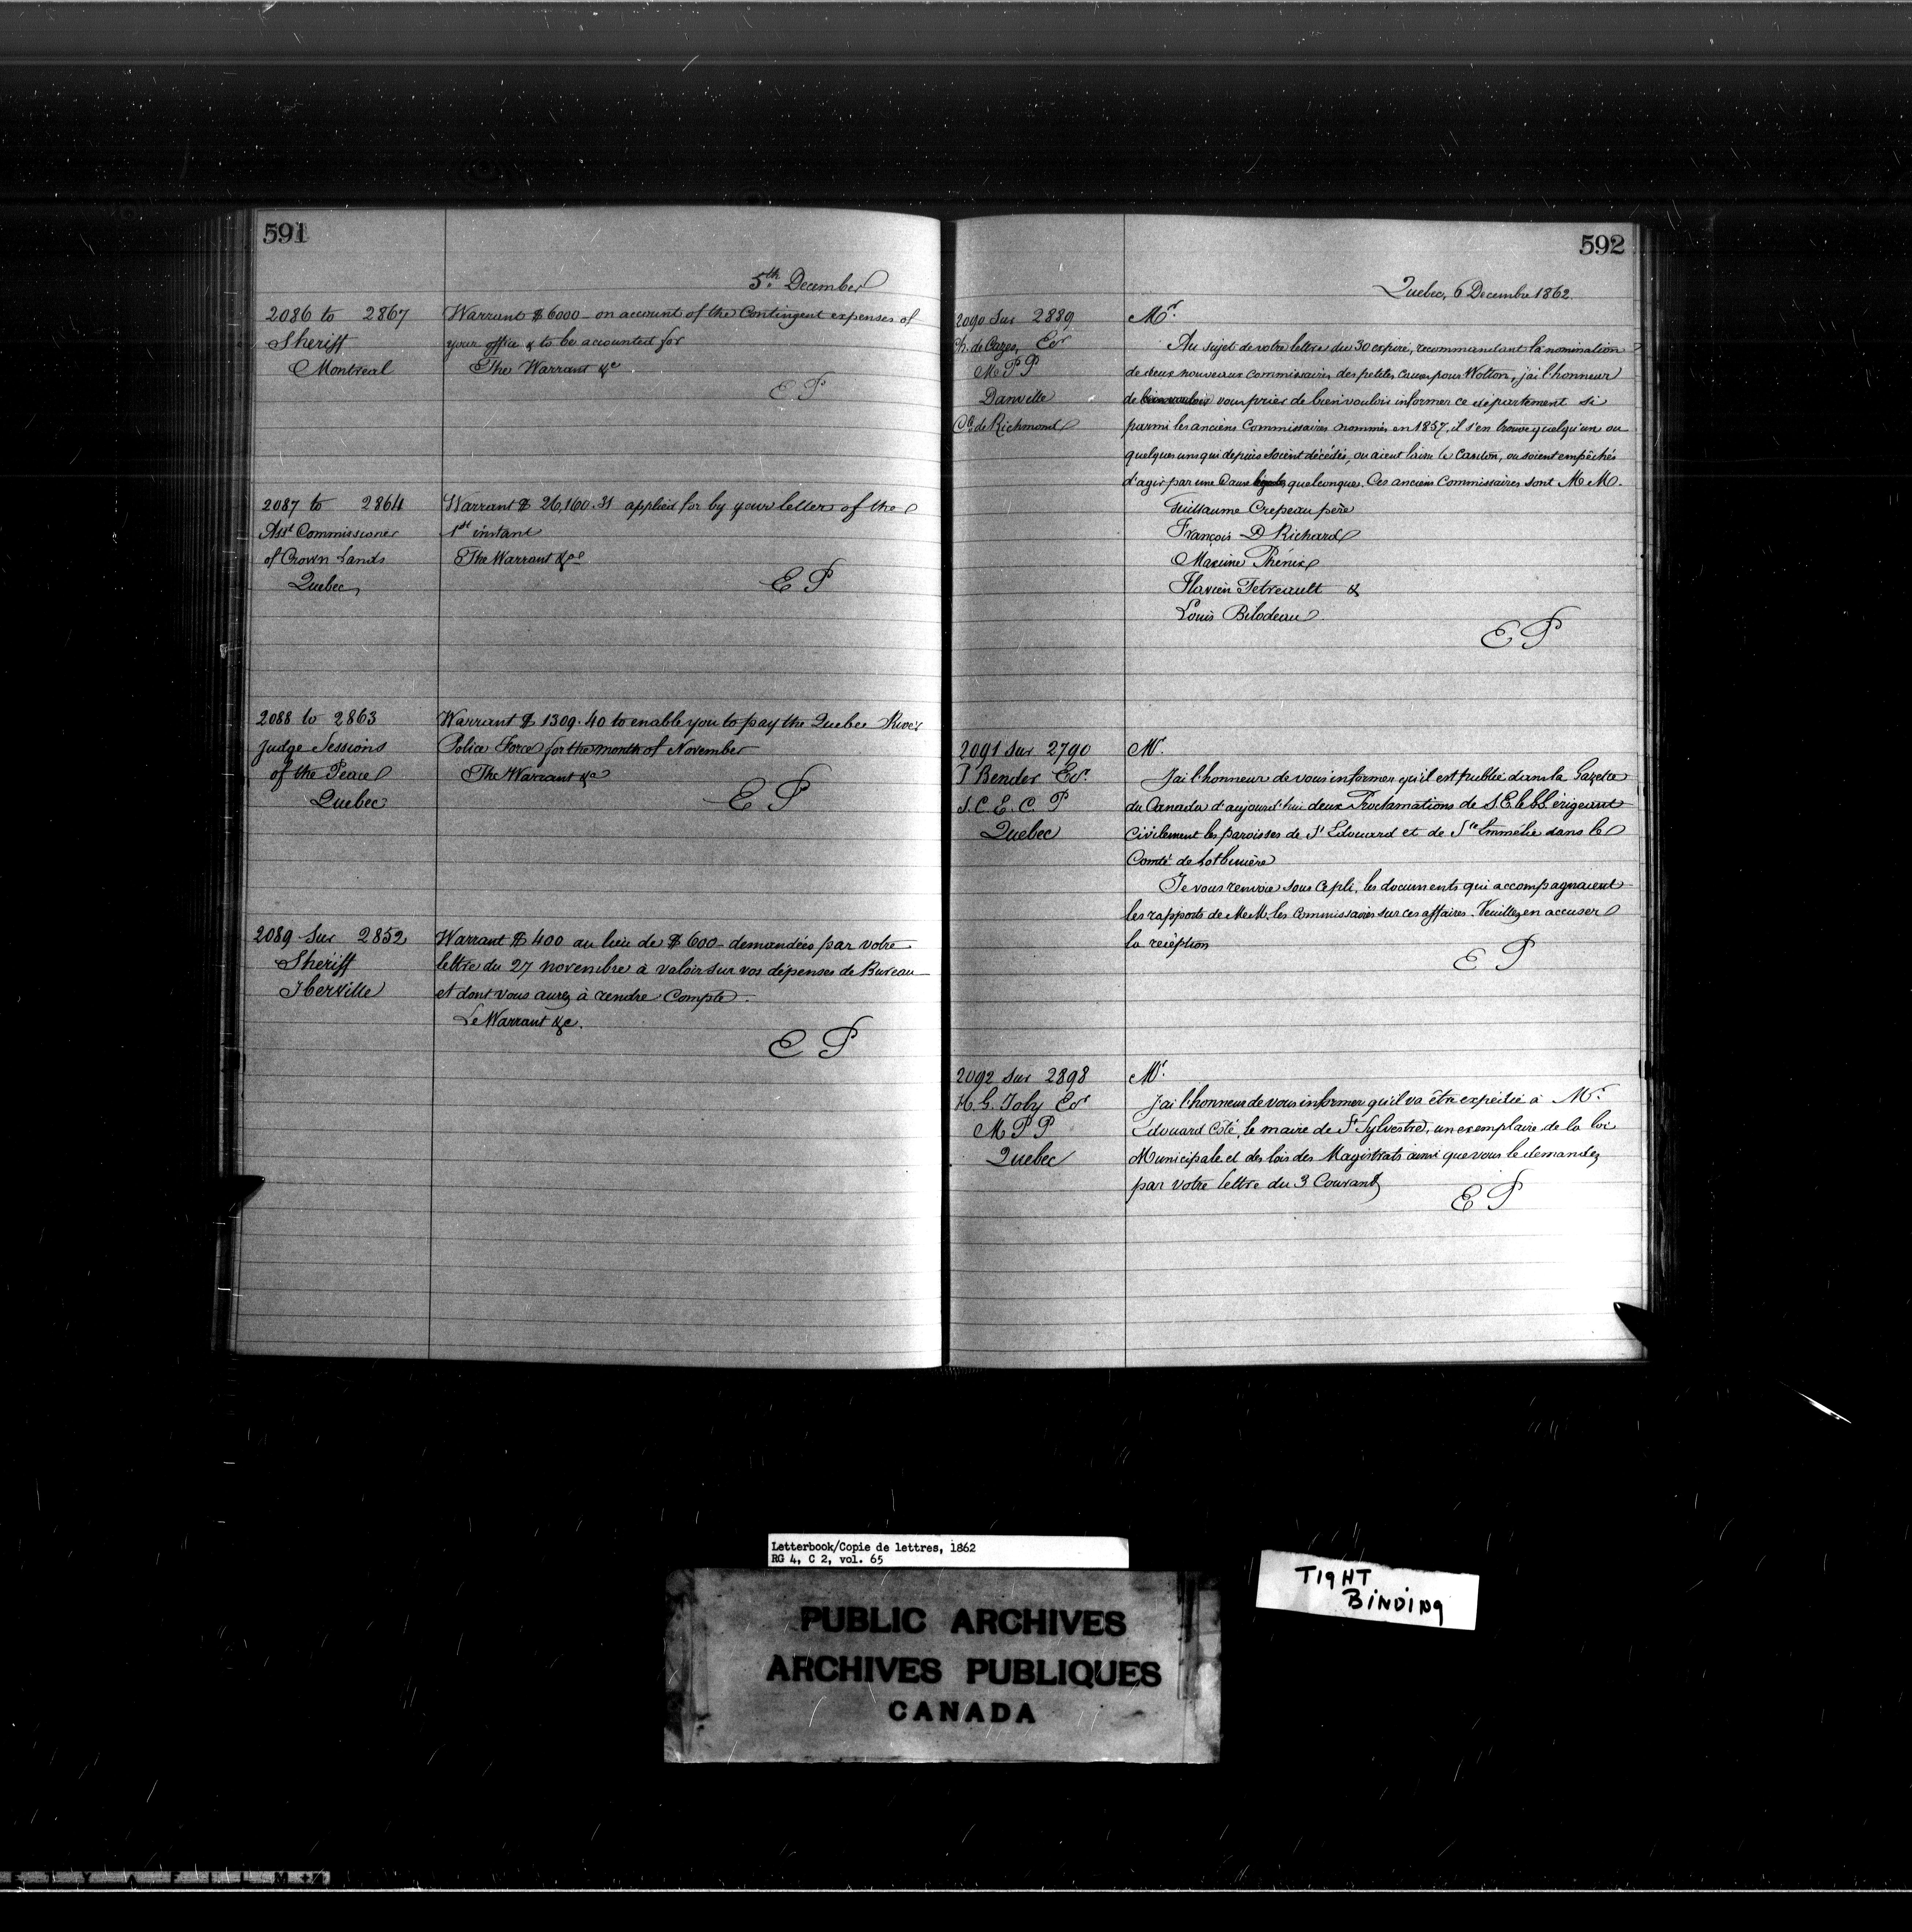 591
5th. December
2086 to 2867
Sheriff
Montreal
Warrant $6000 on account of the Contingent expenses of
your office & to be accounted for
The Warrant &c
E P
2087 to 2864
Asst Commissioner
of Crown Lands
Quebec
Warrant $ 26,160.31 applied for by your letter of the
1st instant
The Warrant &c
E P
2088 to 2863
Judge Sessions
of the Peace
Quebec
Warrant $ 1309.40 to enable you to pay the Quebec River
Police Force for the month of November
The Warrant &c
E P
2089 Sur 2852
Sheriff
Iberville
Warrant $ 400 au lieu de $ 600 demandées par votre
lettre du 27 novembre à valoir sur vos dépenses de Bureau
et dont vous aurez à rendre compte.
Le Warrant &c.
E P
592
Quebec, 6 Decembre 1862.
2090 Sur 2889
Ch. de Cazes, Ecr
M P P
Danville
Co de Richmond
Mr.
Au sujet de votre lettre du 30 expiré, recommandant la nomination
de deux nouveaux commissaires des petites causes pour Wotton, j'ai l'honneur
de bien vouloir vous prier de bien vouloir informer ce département si
parmi les anciens Commissaires nommés en 1857, il s'en trouve quelqu'un ou
quelques uns qui depuis soient décédés, ou aient laissé le Canton, ou soient empêchés
d'agir par une Cause légale quelconque. Ces anciens Commissaires sont M.M.
Guillaume Crepeau père
François D Richard
Maxime Phénix
Flavien Tetreault &
Louis Bilodeau
E P
2091 Sur 2790
P Bender Ecr.
S. C. E. C. P
Quebec
Mr.
J'ai l'honneur de vous informer qu'il est publié dans la Gazette
du Canada d'aujourd'hui deux Proclamations de S. E. érigeant
Civilement les paroisses de St Edouard et de Ste Emmélie dans le
Comté de Lotbinière
Je vous renvoie sous ce pli, les documents qui accompagnaient
les rapports de M.M. les Commissaires sur ces affaires. Veuillez en accuser
la reception
E P
2092 Sur 2898
H. G. Joly Ecr
M P P
Quebec
Mr.
J'ai l'honneur de vous informer qu'il va être expédié à Mr.
Edouard Côté, le maire de St Sylvestre, un exemplaire de la loi
Municipale et des lois des Magistrats ainsi que vous le demandez
par votre lettre du 3 Courant
E P
Letterbook/Copie de lettres, 1862
RG 4, C 2, vol. 65
TIGHT
BINDING
PUBLIC ARCHIVES
ARCHIVES PUBLIQUES
CANADA